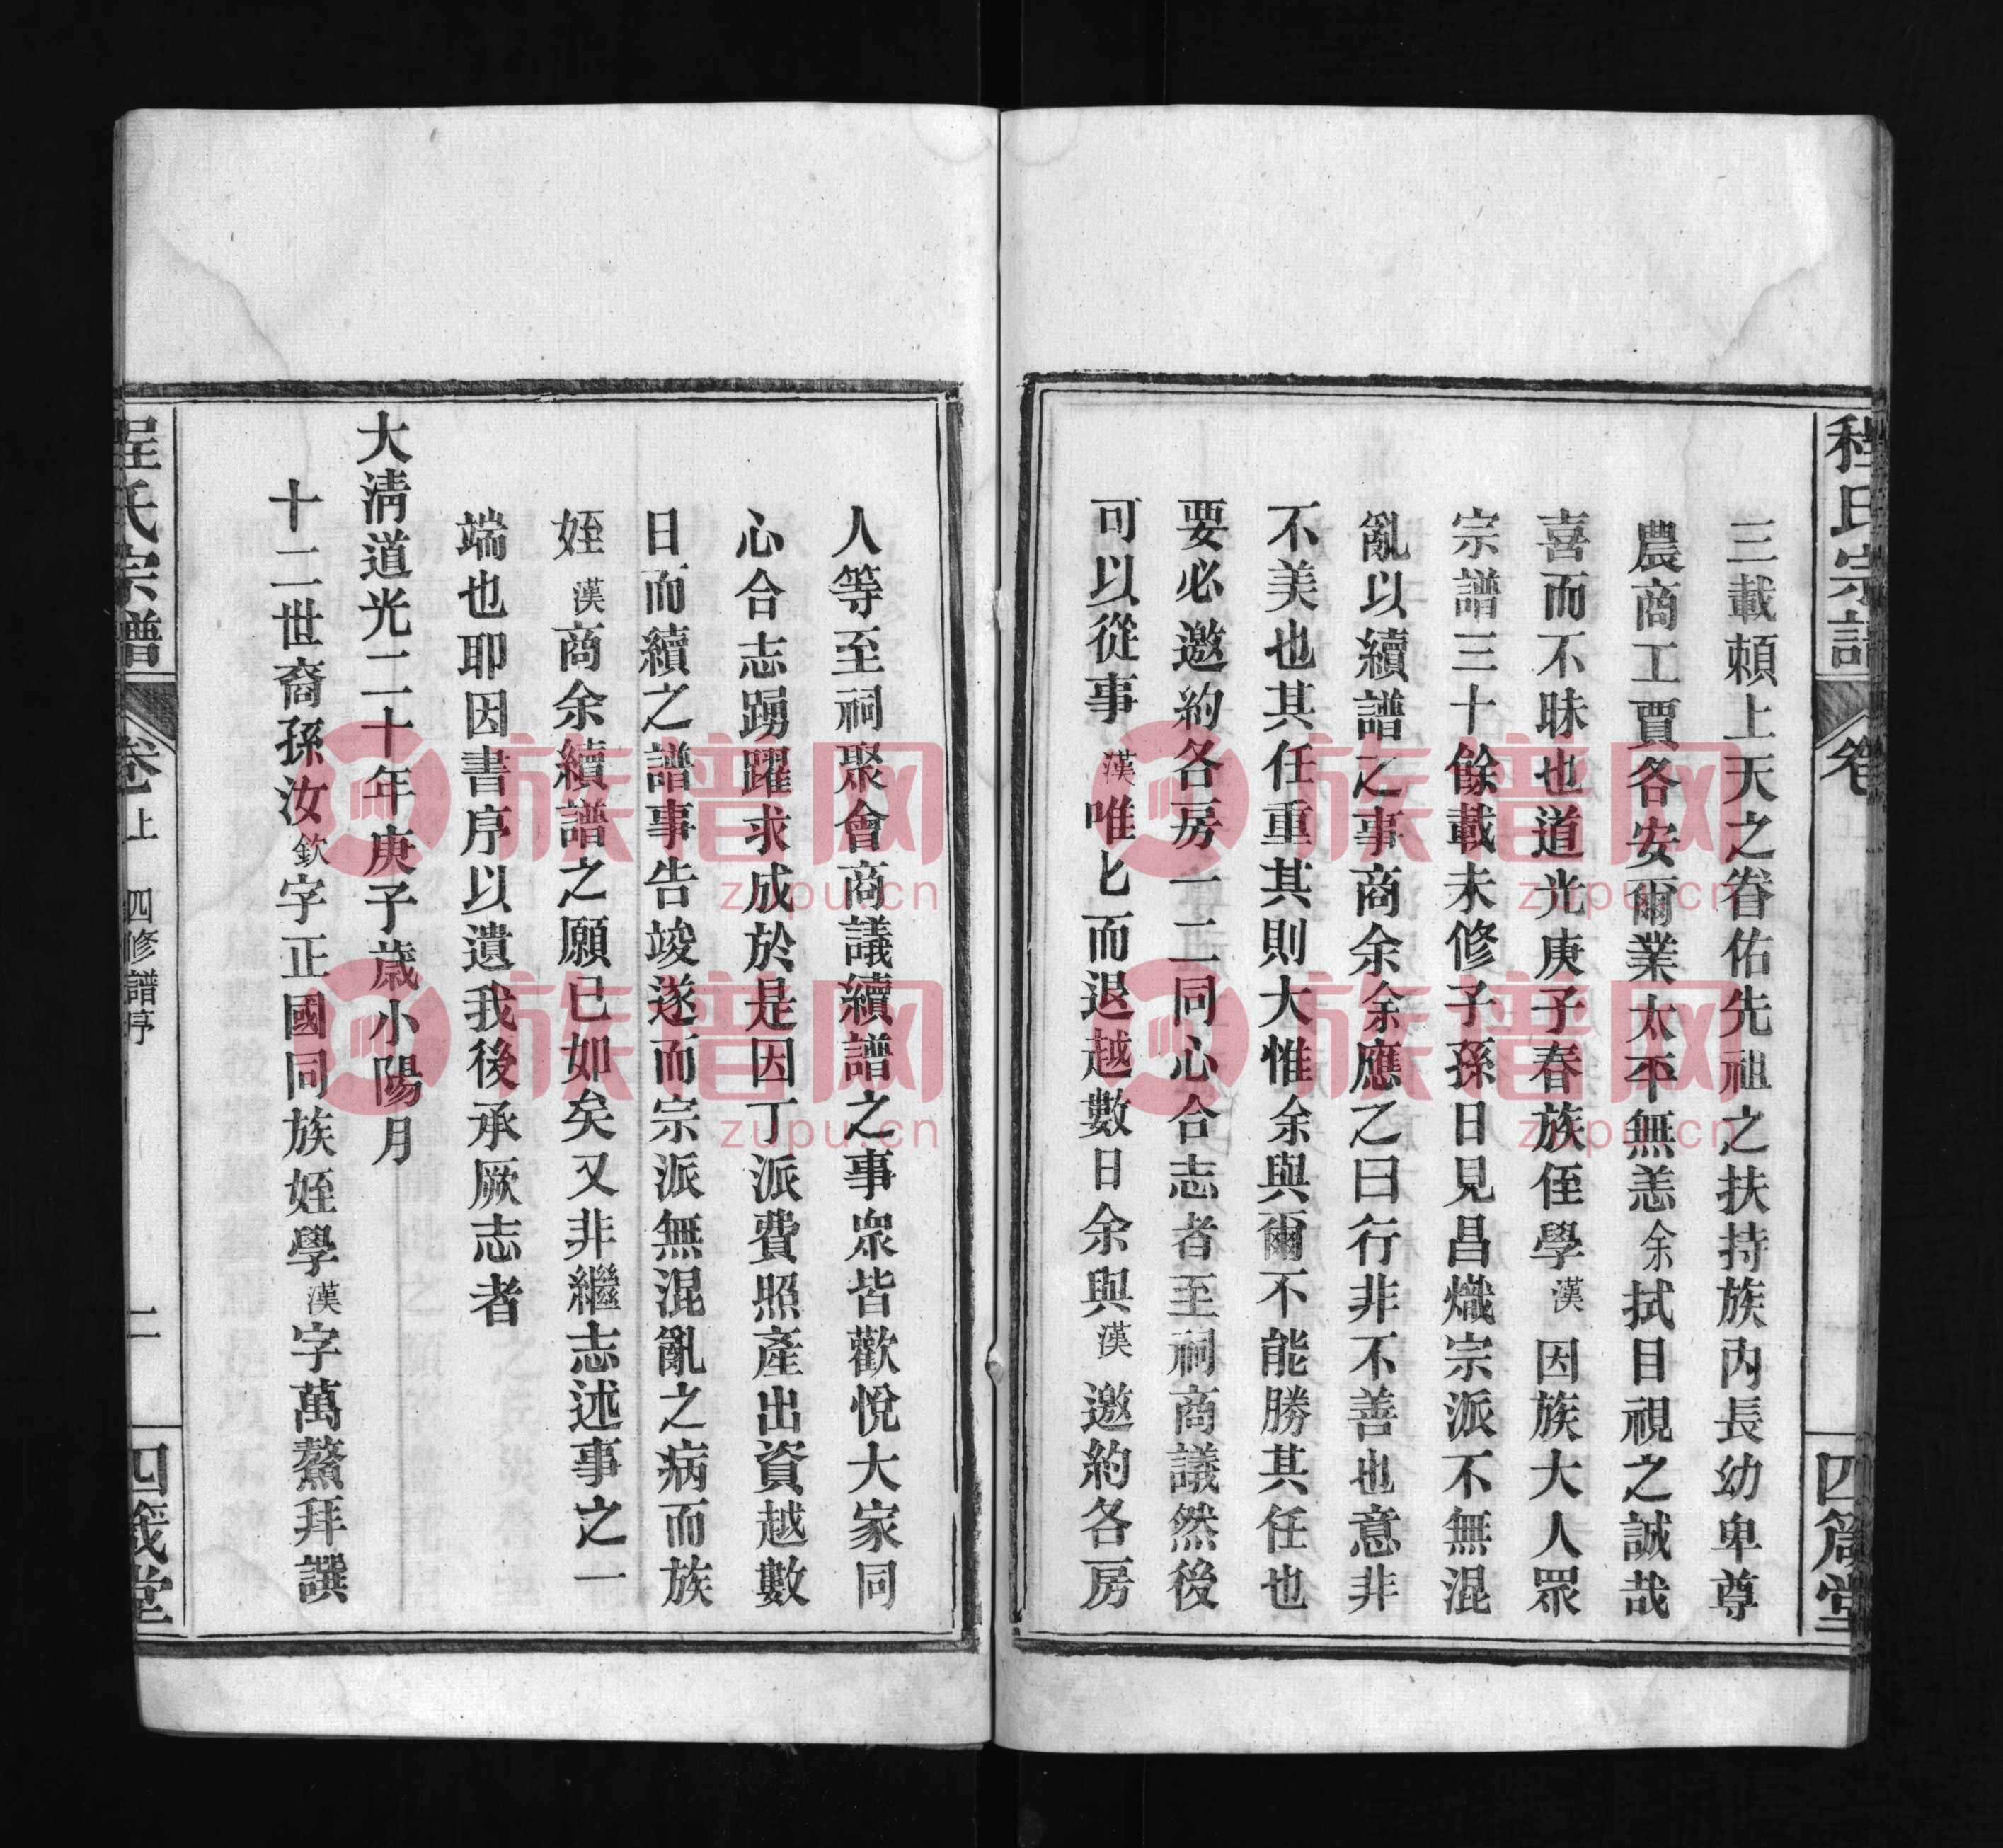 程氏宗譜
卷
四箴堂
三載頼上天之眷佑先祖之扶持族內長幼卑尊
農商工賈各安爾業太平無恙余拭目視之誠哉
喜而不昧也道光庚子春族侄學漢因族大人眾
宗譜三十餘載未修子孫日見昌熾宗派不無混
亂以續譜之事商余余應之曰行非不善也意非
不美也其任重其則大惟余與爾不能勝其任也
要必邀約各房一二同心合志者至祠商議然後
可以從事漢唯匕而退越數日余與漢邀約各房
人等至祠聚會商議續譜之事眾皆歡悅大家同
心合志踴躍求成於是因丁派費照產出資越數
日而續之譜事告竣遂而宗派無混亂之病而族
姪漢商余續譜之願已如矣又非繼志述事之一
端也耶因書序以遺我後承厥志者
大清道光二十年庚子歲小陽月
十二世裔孫汝欽字正國同族姪學漢字萬鰲拜譔
程氏宗譜
卷上 四修譜序
二
四箴堂
族谱网
zupu.cn
族谱网
zupu.cn
族谱网
zupu.cn
族谱网
zupu.cn